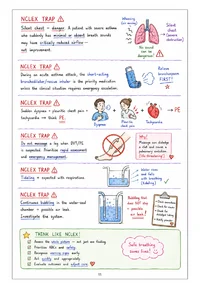 NCLEX TRAP
Silent chest = danger. A patient with severe asthma
who suddenly has minimal or absent breath sounds
may have critically reduced airflow —
not improvement.
Wheezing
Silent
chest
(severe
obstruction)
No sound
can be
dangerous!
NCLEX TRAP
During an acute asthma attack, the short-acting
bronchodilator/rescue inhaler is the priority medication
unless the clinical situation requires emergency escalation.
Relieve
bronchospasm
FIRST!
NCLEX TRAP
Sudden dyspnea + pleuritic chest pain +
tachycardia → think PE.
Dyspnea
Pleuritic
chest pain
Tachycardia
→ PE
NCLEX TRAP
Do not massage a leg when DVT/PE
is suspected. Prioritize rapid assessment
and emergency management.
Why?
Massage can dislodge
a clot and cause a
pulmonary embolism.
NCLEX TRAP
Tidaling = expected with respirations.
Water rises
and falls
with breathing
(tidaling)
NCLEX TRAP
Continuous bubbling in the water-seal
chamber = possible air leak.
Investigate the system.
Bubbling that
does NOT stop
= possible
air leak!
THINK LIKE NCLEX!
Assess the whole picture — not just one finding.
Prioritize ABCs and safety.
Recognize warning signs early.
Act quickly and appropriately.
Evaluate outcomes and adjust care.
Safe breathing
saves lives!